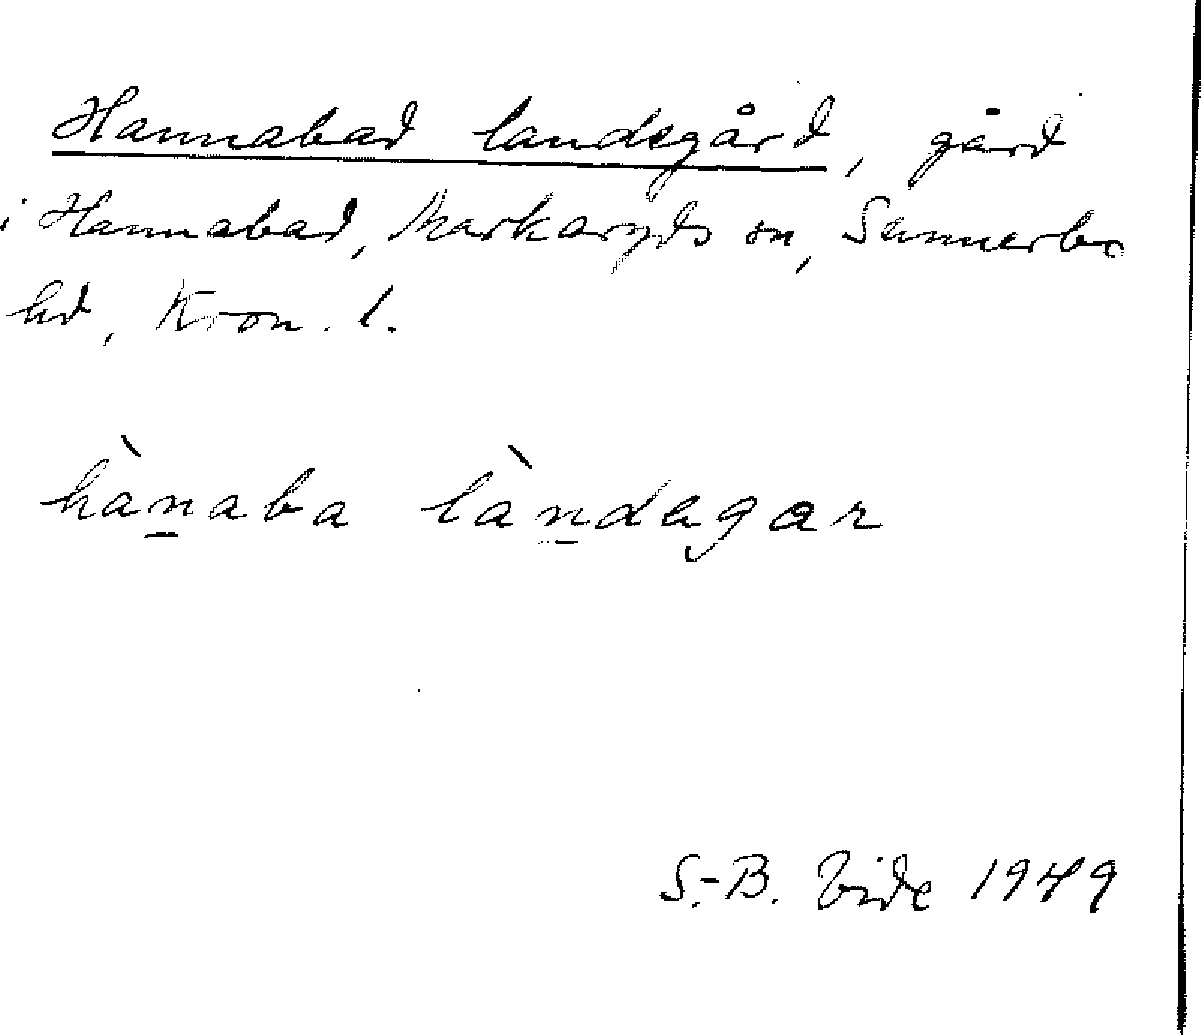 Hannabad landsgård, gård
i Hannabad, Markaryds sn, Sunnerbo
hd, Kron. l.
hànaba làndagar
S.-B. Vide 1949